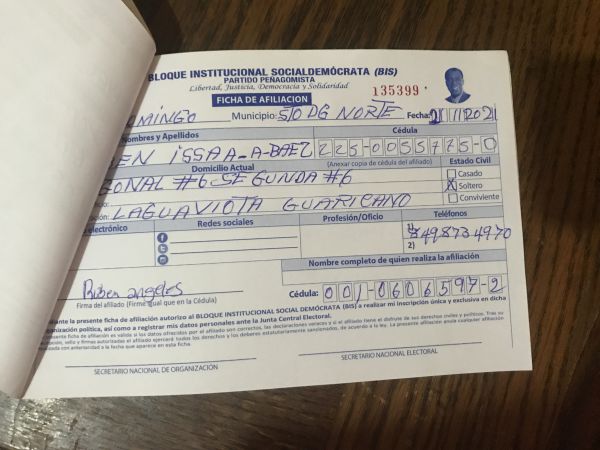 BLOQUE INSTITUCIONAL SOCIALDEMÓCRATA (BIS)
PARTIDO PEÑAGOMISTA
Libertad, Justicia, Democracia y Solidaridad
135399
FICHA DE AFILIACION
OMINGO Municipio: STO DG NORTE Fecha:
Nombres y Apellidos Cédula
EN ISSAA-A-BAEZ 225-0055775-0
Domicilio Actual (Anexar copia de cédula del afiliado) Estado Civil
ZONAL #6-SEGUNDA #6 Casado
X Soltero
LAGUAVIOTA GUARICANO Conviviente
electrónico Redes sociales Profesión/Oficio Teléfonos
1) 849 873 4970
2)
Nombre completo de quien realiza la afiliación
Ruben angeles
Firma del afiliado (Firme igual que en la Cédula) Cédula: 001-0606597-2
diante la presente ficha de afiliación autorizo al BLOQUE INSTITUCIONAL SOCIAL DEMÓCRATA (BIS) a realizar mi inscripción única y exclusiva en dicha
ganización política, así como a registrar mis datos personales ante la Junta Central Electoral.
presente ficha de afiliación es valida si los datos ofrecidos por el afiliado son correctos, las declaraciones veraces y si el afiliado tiene el disfrute de sus derechos civiles y políticos. Tras su
sello y firmas autorizadas el afiliado ejercerá todos los derechos y los deberes estatutariamente sancionados, de acuerdo a la ley. La presente afiliación anula cualquier afiliación
realizada con anterioridad a la fecha que aparece en esta ficha.
SECRETARIO NACIONAL DE ORGANIZACIÓN SECRETARIO NACIONAL ELECTORAL